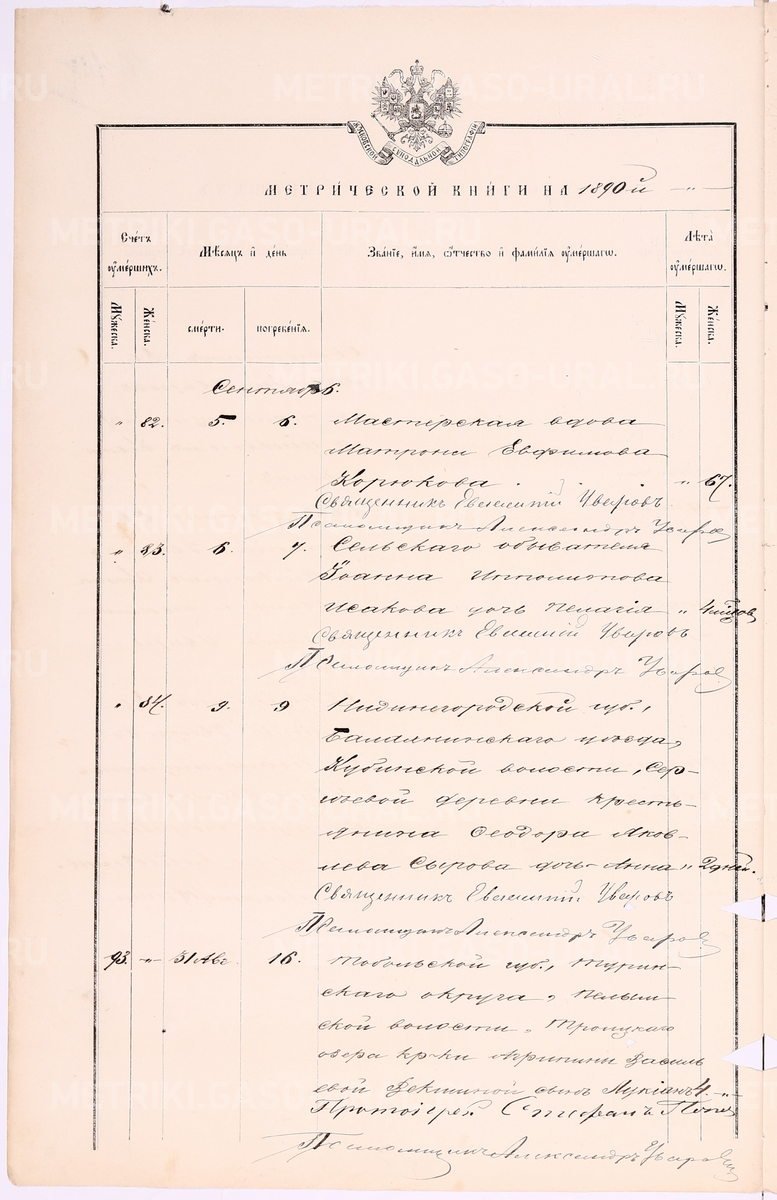 МОСКОВСКОЙ СѴНОДАЛЬНОЙ ТИПОГРАФІИ
МЕТРИ́ЧЕСКОЙ КНИ́ГИ НА 1890й
Сче́тъ оуме́ршихъ. Мѣ́сяцъ и де́нь Зва́нїе, и́мя, ѻ҆́тчество и фами́лїя оуме́ршагѡ. Лѣта̀ оуме́ршагѡ.
Мꙋжеска. Же́нска. сме́рти. погребе́нїя. Мꙋжеска. Же́нска.
Сентябрь.
" 82. 5. 6. Мастерская вдова
Матрона Евфимова
Корюкова . . . " 67.
Священникъ Евгений Уваровъ
Псаломщикъ Александръ Уваров
" 83. 6. 7. Сельскаго обывателя
Іоанна Ипполитова
Исакова дочь Пелагія " 4 мѣсяцов
Священникъ Евгений Уваровъ
Псаломщикъ Александръ Уваров
" 84. 9. 9 Нижнегородской губ.,
Балахнинскаго уѣзда,
Кубинской волости, Сер-
гѣевой деревни кресть-
янина Ѳеодора Яков-
лева Сырова дочь Анна " 2 дней.
Священникъ Евгений Уваровъ
Псаломщикъ Александръ Уваров
93. -"- 31 Авг. 16. Тобольской губ., Турин-
скаго округа, Пелым-
ской волости, Троицкаго
озера кр-ки Агрипины Василь
евой сынъ Лукіанъ 4. -"-
Протоіерей Стефанъ Попов
Псаломщикъ Александръ Уваров